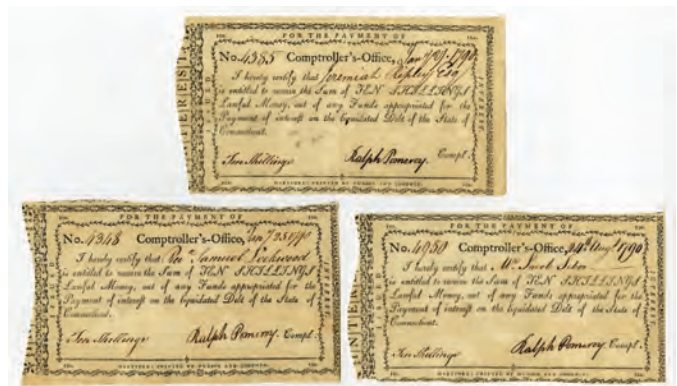 FOR THE PAYMENT OF
INTEREST
ISSUED
INTEREST.
No. 4385 Comptroller's-Office, Jany 29. 1790
I hereby certify that Jeremiah Ripley Esq
is entitled to receive the Sum of TEN SHILLINGS
Lawful Money, out of any Funds appropriated for the
Payment of interest on the liquidated Debt of the State of
Connecticut.
Ten Shillings Ralph Pomeroy. Compt.
HARTFORD: PRINTED BY HUDSON AND GOODWIN.
FOR THE PAYMENT OF
No. 4348 Comptroller's-Office, 25 1790
I hereby certify that Samuel Lockwood
is entitled to receive the Sum of TEN SHILLINGS
Lawful Money, out of any Funds appropriated for the
Payment of interest on the liquidated Debt of the State of
Connecticut.
Ten Shillings Ralph Pomeroy. Compt.
HARTFORD: PRINTED BY HUDSON AND GOODWIN.
FOR THE PAYMENT OF
INTEREST.
No. 4950 Comptroller's-Office, 24th Augt 1790
I hereby certify that Mr Jacob
is entitled to receive the Sum of TEN SHILLINGS
Lawful Money, out of any Funds appropriated for the
Payment of interest on the liquidated Debt of the State of
Connecticut.
Ten Shillings Ralph Pomeroy. Compt.
HARTFORD: PRINTED BY HUDSON AND GOODWIN.